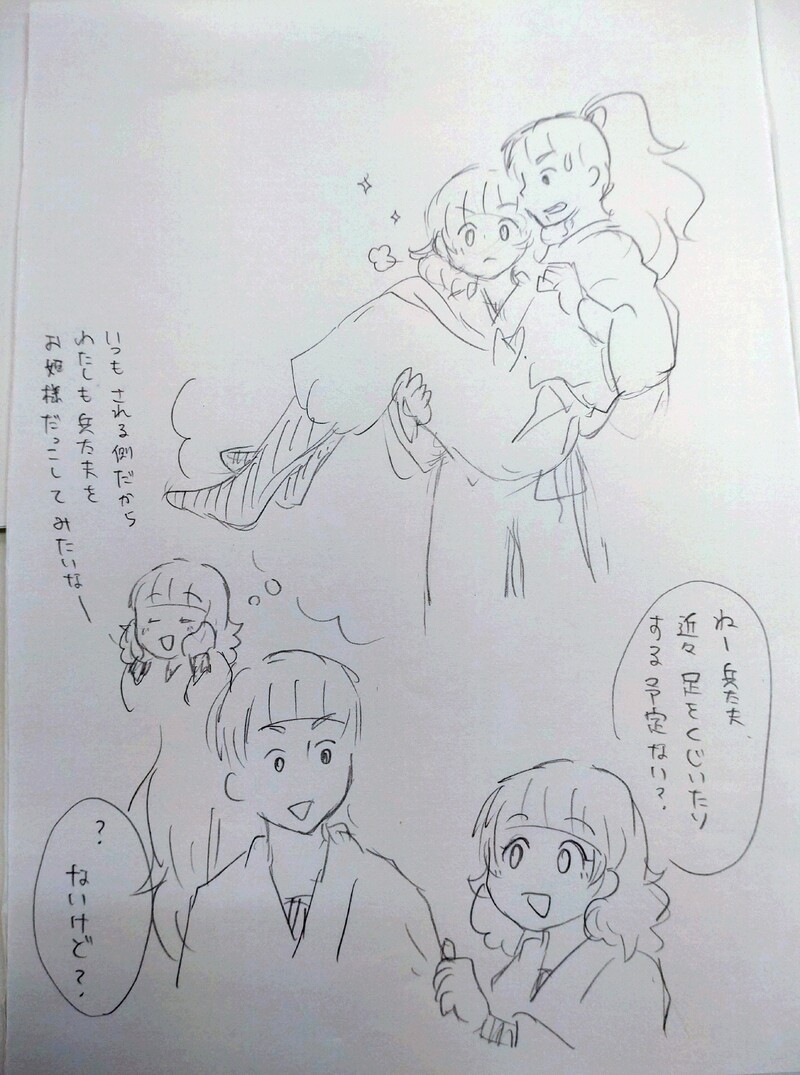 いつも される側だから
わたしも 兵太夫を
お姫様だっこして みたいなー
ねー 兵太夫、
近々 足をくじいたり
する予定ない?
?
ないけど?